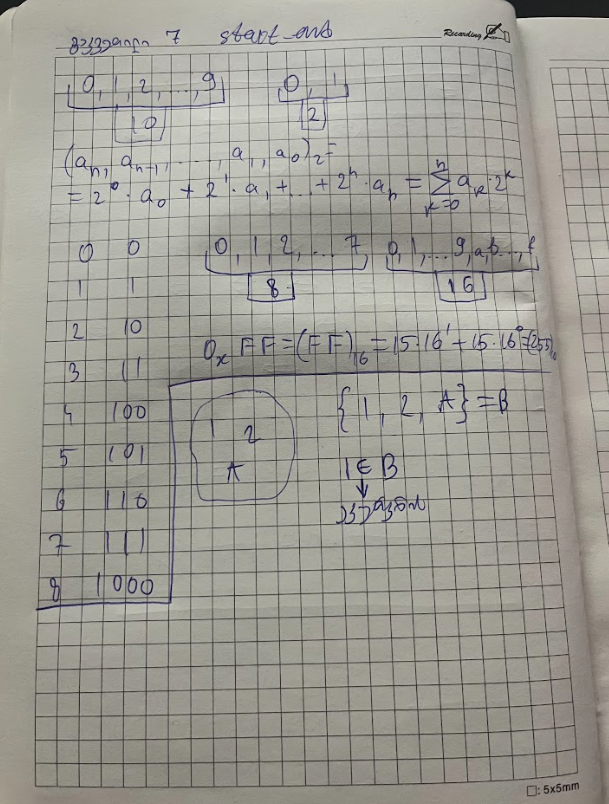 7 start-ours
Recarding
0, 1, 2, ..., 9 0, 1
10 2
(aₙ, aₙ₋₁, ..., a₁, a₀)₂ =
= 2⁰ · a₀ + 2¹ · a₁ + ... + 2ⁿ · aₙ = ∑ₖ₌₀ⁿ aₖ · 2ᵏ
0 0
1 1
2 10
3 11
4 100
5 101
6 110
7 111
8 1000
0, 1, 2, ... 7, 0, 1, ... 9, a, b..., f
8 16
0x FF = (FF)₁₆ = 15 · 16¹ + 15 · 16⁰ = (255)₁₀
1 2
A
{1, 2, A} = B
1 ∈ B
↓
□: 5x5mm